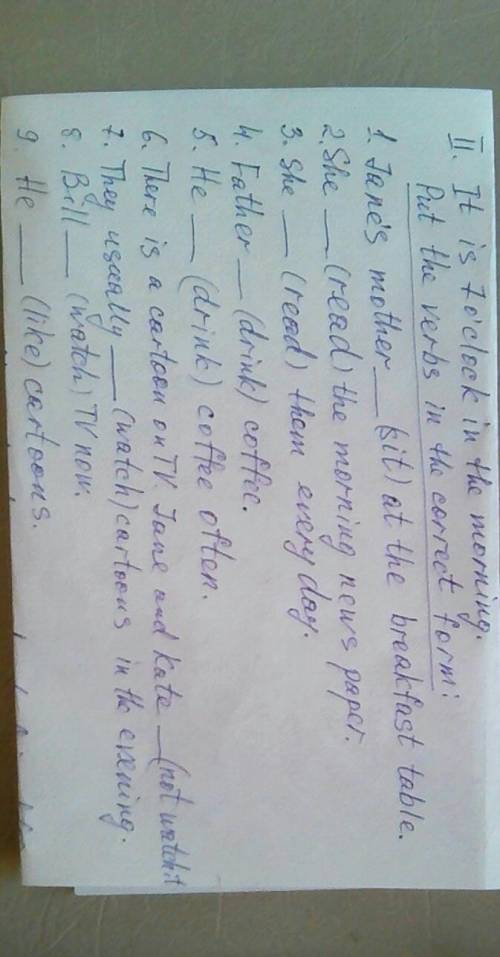 II. It is 7 o'clock in the morning.
Put the verbs in the correct form:
1. Jane's mother __ (sit) at the breakfast table.
2. She __ (read) the morning news paper.
3. She __ (read) them every day.
4. Father __ (drink) coffee.
5. He __ (drink) coffee often.
6. There is a cartoon on TV. Jane and Kate __ (not watch it
7. They usually __ (watch) cartoons in the evening.
8. Bill __ (watch) TV now.
9. He __ (like) cartoons.